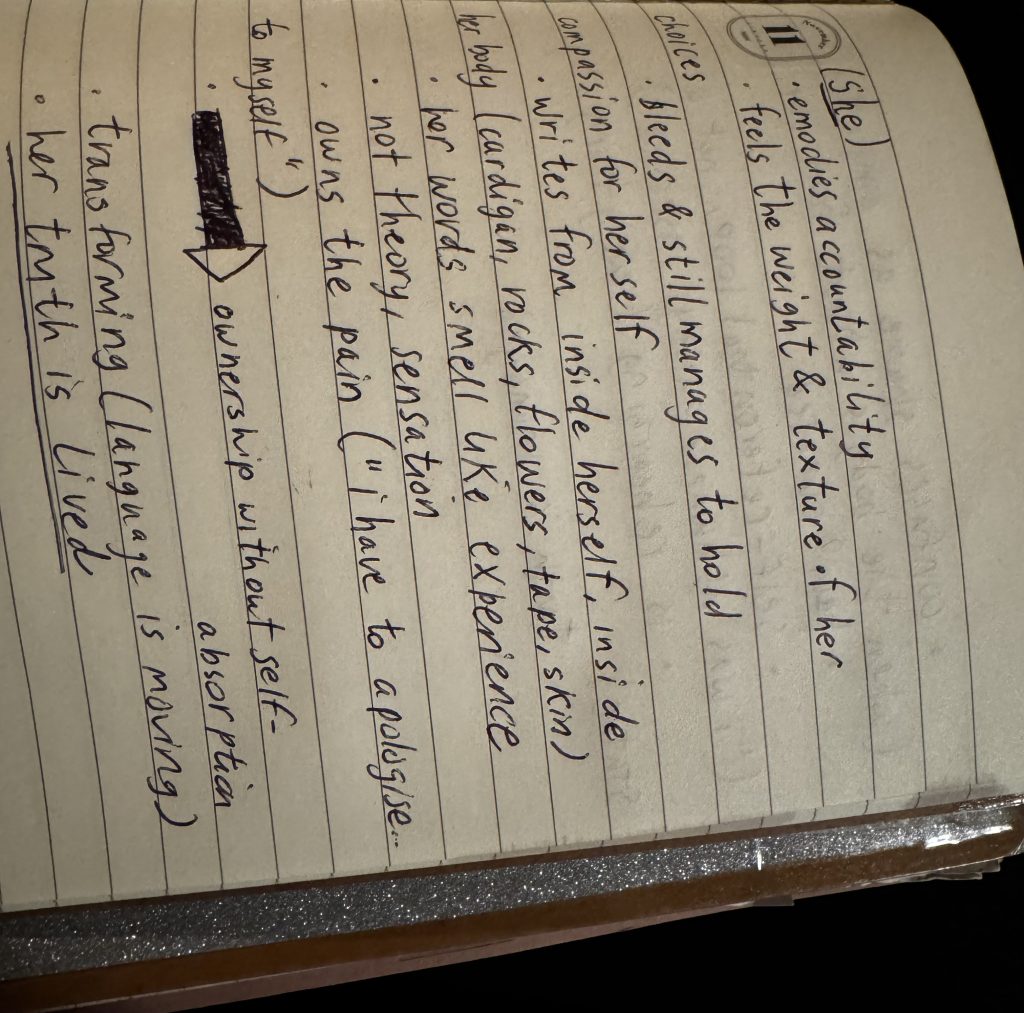 11
(She)
· emodies accountability
· feels the weight & texture of her
choices
· bleeds & still manages to hold
compassion for herself
· writes from inside herself, inside
her body (cardigan, rocks, flowers, tape, skin)
· her words smell like experience
· not theory, sensation
· owns the pain ("i have to apologise...
to myself")
· ownership without self-
absorption
· transforming (language is moving)
· her truth is lived